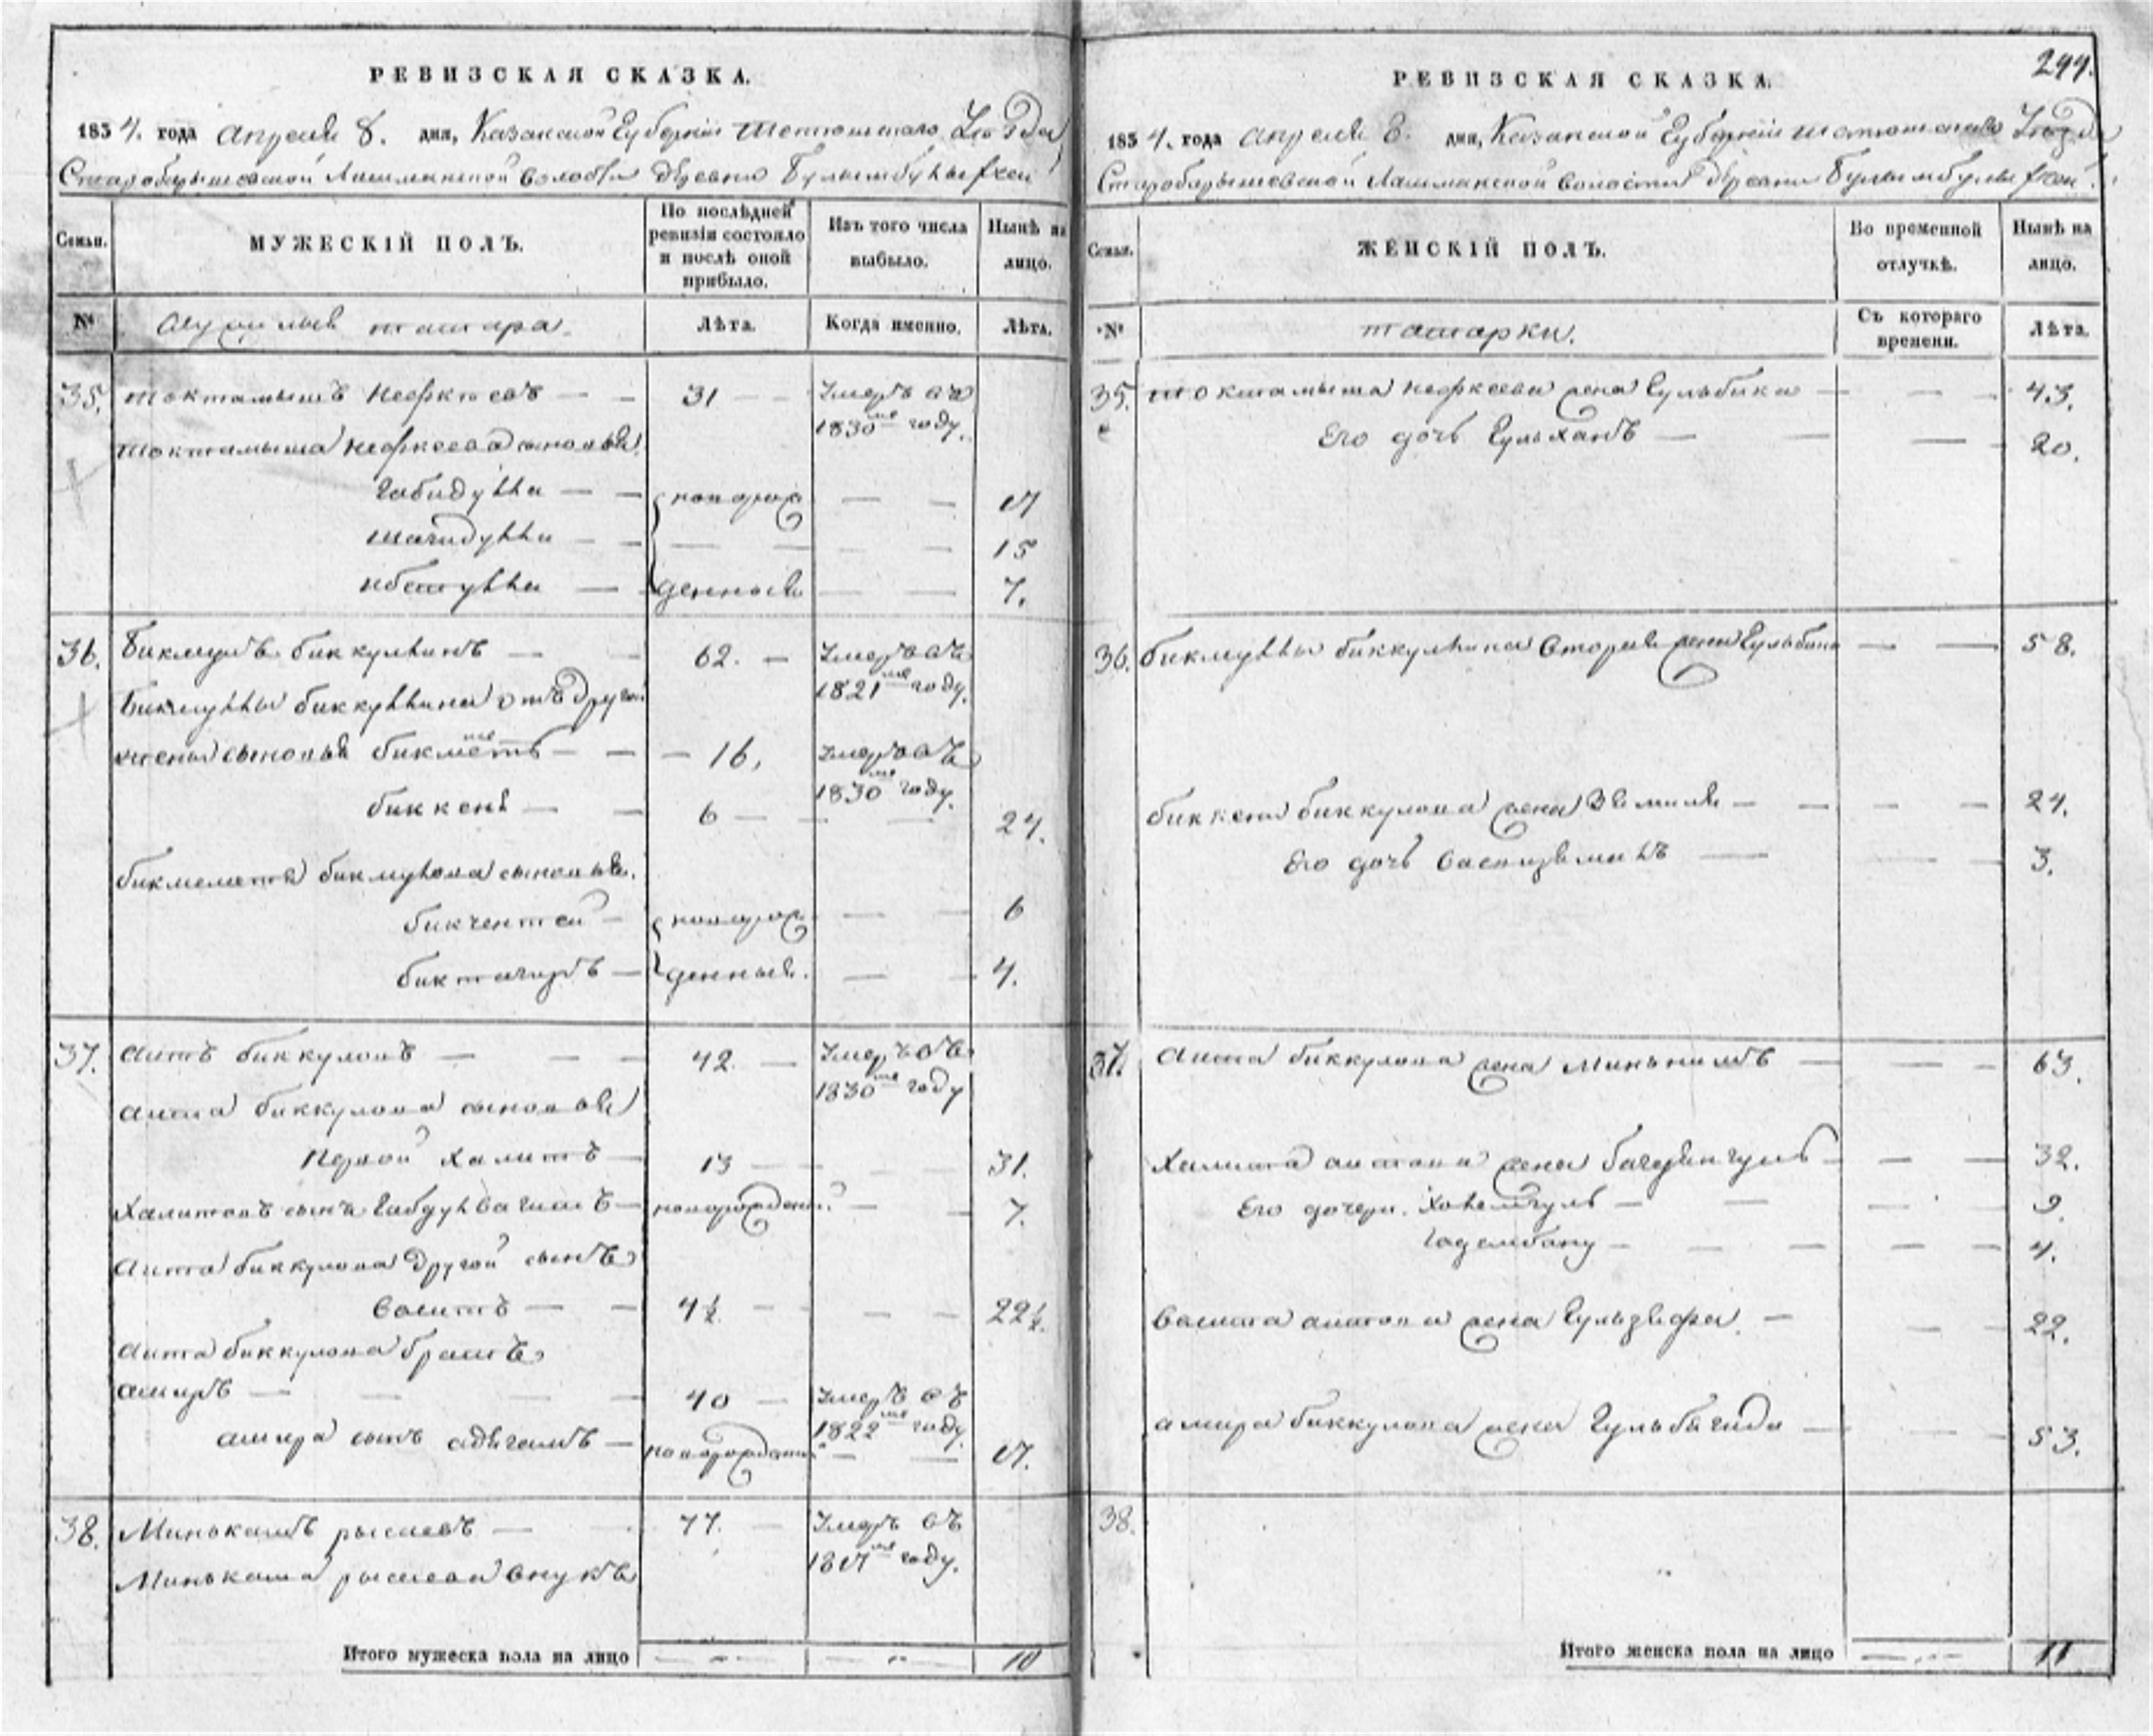 РЕВИЗСКАЯ СКАЗКА.
1834. года апреля 8. дня, Казанской Губернии Тетюшскаго Уезда
Старобарышевской Лашманской волости деревни
Семьи.
МУЖЕСКІЙ ПОЛЪ.
По послѣдней ревизіи состояло и послѣ оной прибыло.
Изъ того числа выбыло.
Нынѣ на лицо.
№
татара.
Лѣта.
Когда именно.
Лѣта.
35. Токтамышъ Нефкеевъ — 31 — Умеръ въ
1830 году.
Токтамыша Нефкеева сыновья
Габидулла — новорож — 17
Шагидулла — 15
— денныя — 7.
36. Бикмулъ биккулинъ — 62. — Умеръ въ
1821 году.
Бикмуллы биккуллина отъ другой
жены сыновья бикметъ — 16, Умеръ въ
1830 году.
биккеня — 6 — 24.
бикмемета бикмулова сыновья.
бикчентей — новорож — 6
биктагиръ — денныя. — 4.
37. Аитъ биккуловъ — 42. — Умеръ въ
1830 году
аита биккулова сыновья
Первой Халитъ — 13 — 31.
Халитовъ сынъ — новорожден. — 7.
Аита биккулова другой сынъ
Васитъ — 4½ — 22½.
Аита биккулова братъ
амиръ — 40 — Умеръ въ
1822 году
амира сынъ адигамъ — новорожден — 17.
38. Минькашъ рысаевъ — 77. — Умеръ въ
1817 году.
Минькаша рысаева внукъ
Итого мужеска пола на лицо — 10
244.
РЕВИЗСКАЯ СКАЗКА.
1834. года апреля 8. дня, Казанской Губернии Тетюшскаго Уезда
Старобарышевской Лашманской волости деревни
Семьи.
ЖЕНСКІЙ ПОЛЪ.
Во временной отлучкѣ.
Нынѣ на лицо.
№
татарки.
Съ котораго времени.
Лѣта.
35. Токтамыша Нефкеева жена Гульбика — 43.
Его дочь Гульханъ — 20.
36. бикмуллы биккулина вторая жена Гульбана — 58.
биккени биккулова жена Зямиля — 24.
Его дочь — 3.
37. Аита биккулова жена — 63.
Халита аитова жена — 32.
Его дочери. — 9.
— 4.
Васита аитова жена Гульзяфа — 22.
амира биккулова жена Гульбагида — 53.
38.
Итого женска пола на лицо — 11